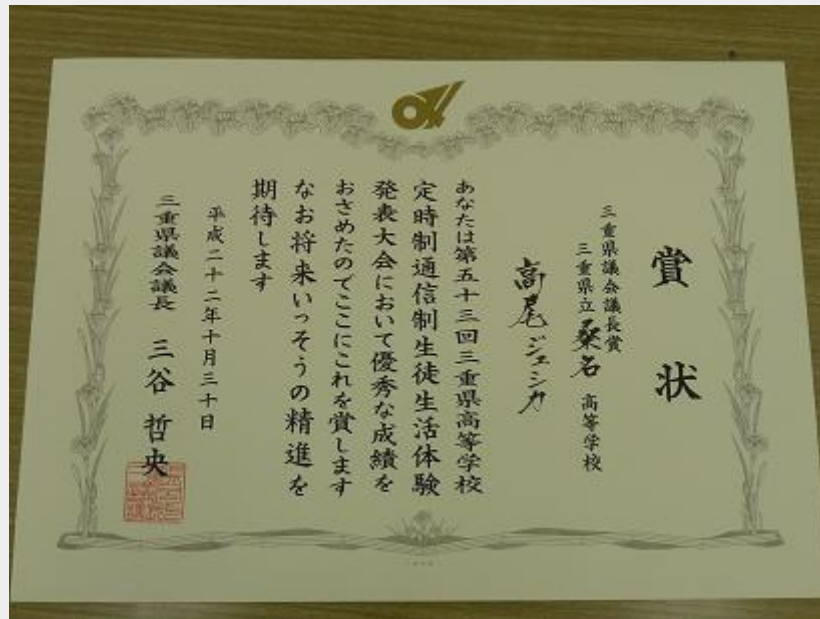 賞状
三重県議会議長賞
三重県立桑名高等学校
高尾ジェシカ
あなたは第五十三回三重県高等学校
定時制通信制生徒生活体験
発表大会において優秀な成績を
おさめたのでここにこれを賞します
なお将来いっそうの精進を
期待します
平成二十二年十月三十日
三重県議会議長 三谷哲央